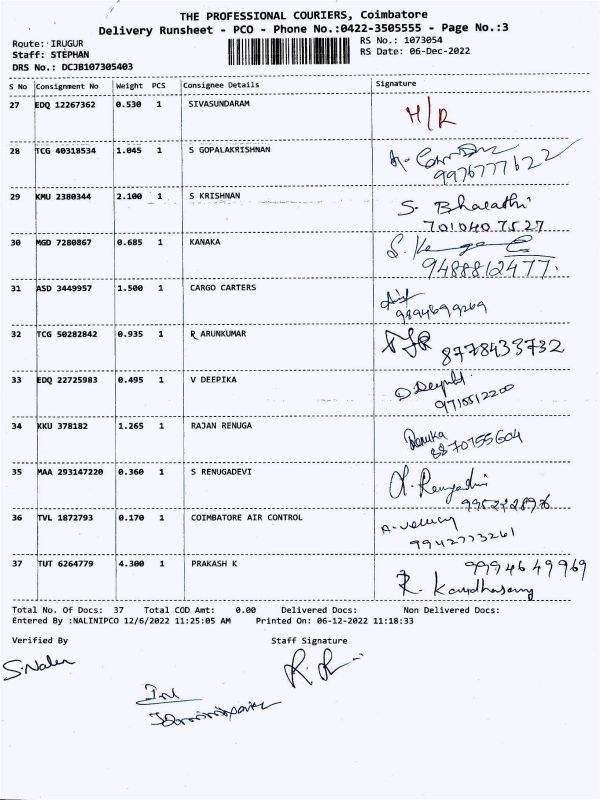 THE PROFESSIONAL COURIERS, Coimbatore
Delivery Runsheet - PCO - Phone No.:0422-3505555 - Page No.:3
Route: IRUGUR RS No.: 1073054
Staff: STEPHAN RS Date: 06-Dec-2022
DRS No.: DCJB107305403
S No Consignment No Weight PCS Consignee Details Signature
27 EDQ 12267362 0.530 1 SIVASUNDARAM H/R
28 TCG 40318534 1.045 1 S GOPALAKRISHNAN
9976777622
29 KMU 2380344 2.100 1 S KRISHNAN S. Bharathi
701040 7527
30 MGD 7280867 0.685 1 KANAKA
9488812477.
31 ASD 3449957 1.500 1 CARGO CARTERS
9894699269
32 TCG 50282842 0.935 1 R ARUNKUMAR
8778433732
33 EDQ 22725983 0.495 1 V DEEPIKA D Deepika
9715512200
34 KKU 378182 1.265 1 RAJAN RENUGA Renuka
8870755604
35 MAA 293147220 0.360 1 S RENUGADEVI
36 TVL 1872793 0.170 1 COIMBATORE AIR CONTROL
9942773261
37 TUT 6264779 4.300 1 PRAKASH K 9994649969
Total No. Of Docs: 37 Total COD Amt: 0.00 Delivered Docs: Non Delivered Docs:
Entered By :NALINIPCO 12/6/2022 11:25:05 AM Printed On: 06-12-2022 11:18:33
Verified By Staff Signature